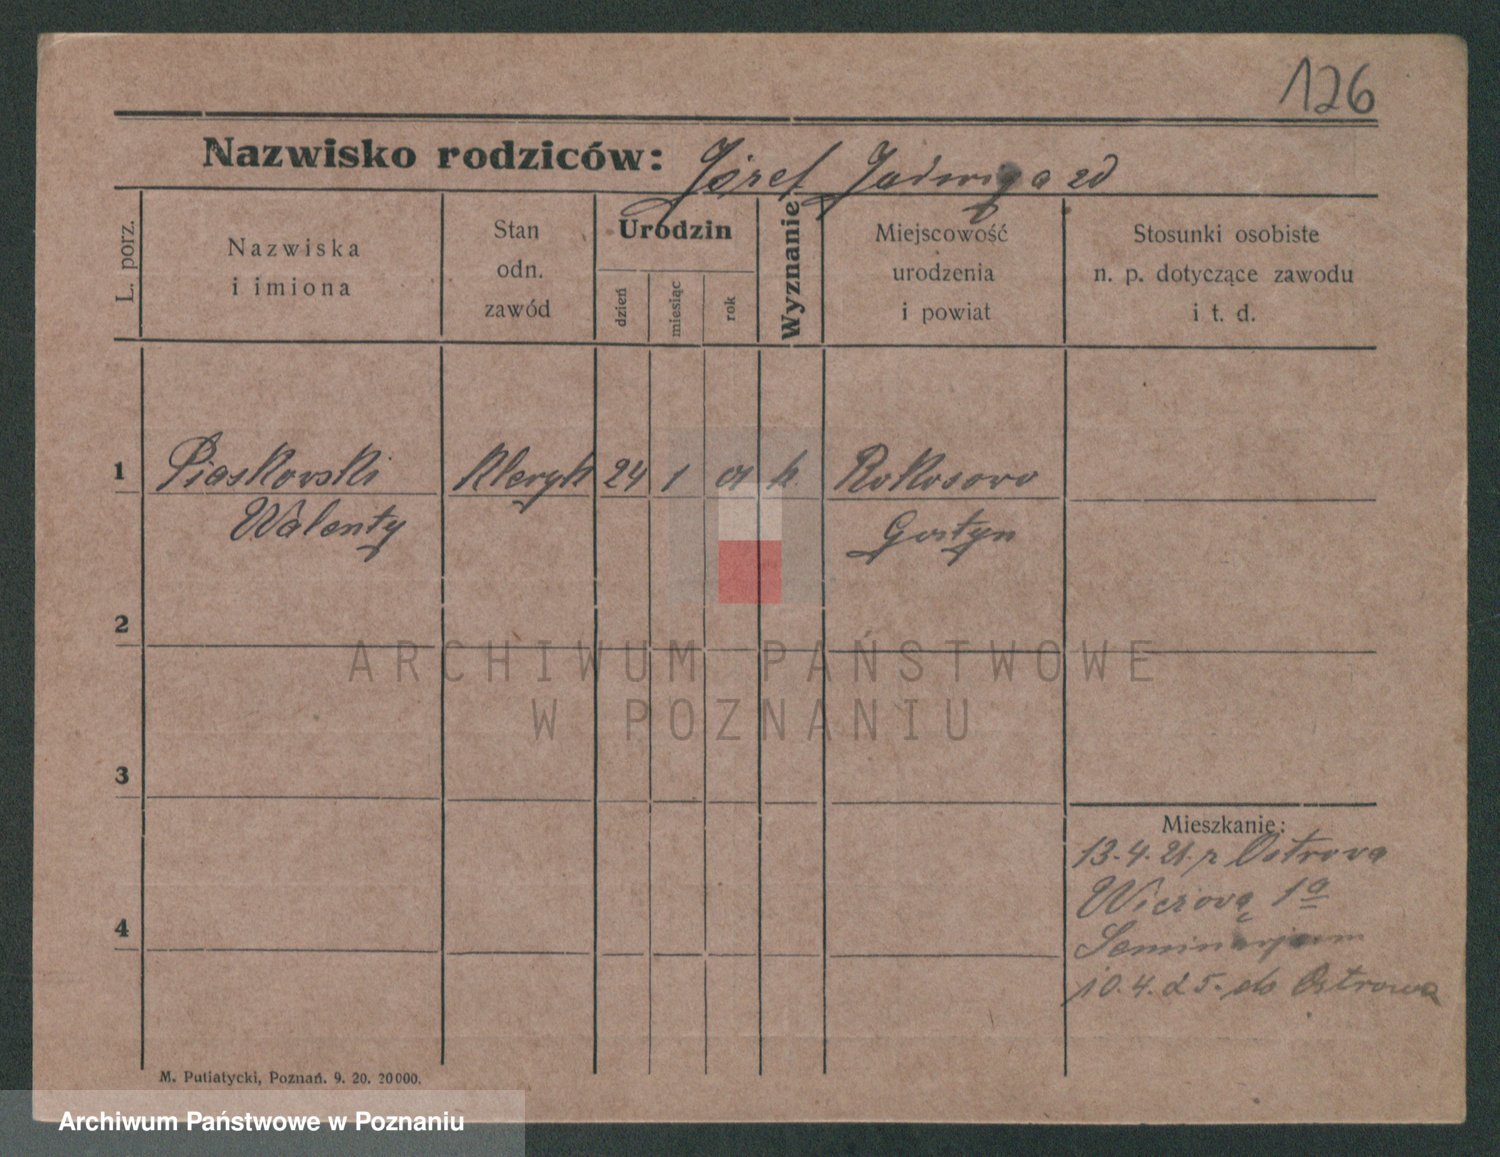 126
Nazwisko rodziców: Józef Jadwiga zd
L. porz.
Nazwiska
i imiona
Stan
odn.
zawód
Urodzin
dzień
miesiąc
rok
Wyznanie
Miejscowość
urodzenia
i powiat
Stosunki osobiste
n. p. dotyczące zawodu
i t. d.
1 Piaskowski kleryk 24 1 01 k. Rokosowo
Walenty Gostyn
2
ARCHIWUM PAŃSTWOWE
W POZNANIU
3
Mieszkanie:
13.4.21. z Ostrowa
Wieżowa 1a
4
Seminarjum
10.4.25. do Ostrowa
M. Putiatycki, Poznań. 9. 20. 20000.
Archiwum Państwowe w Poznaniu